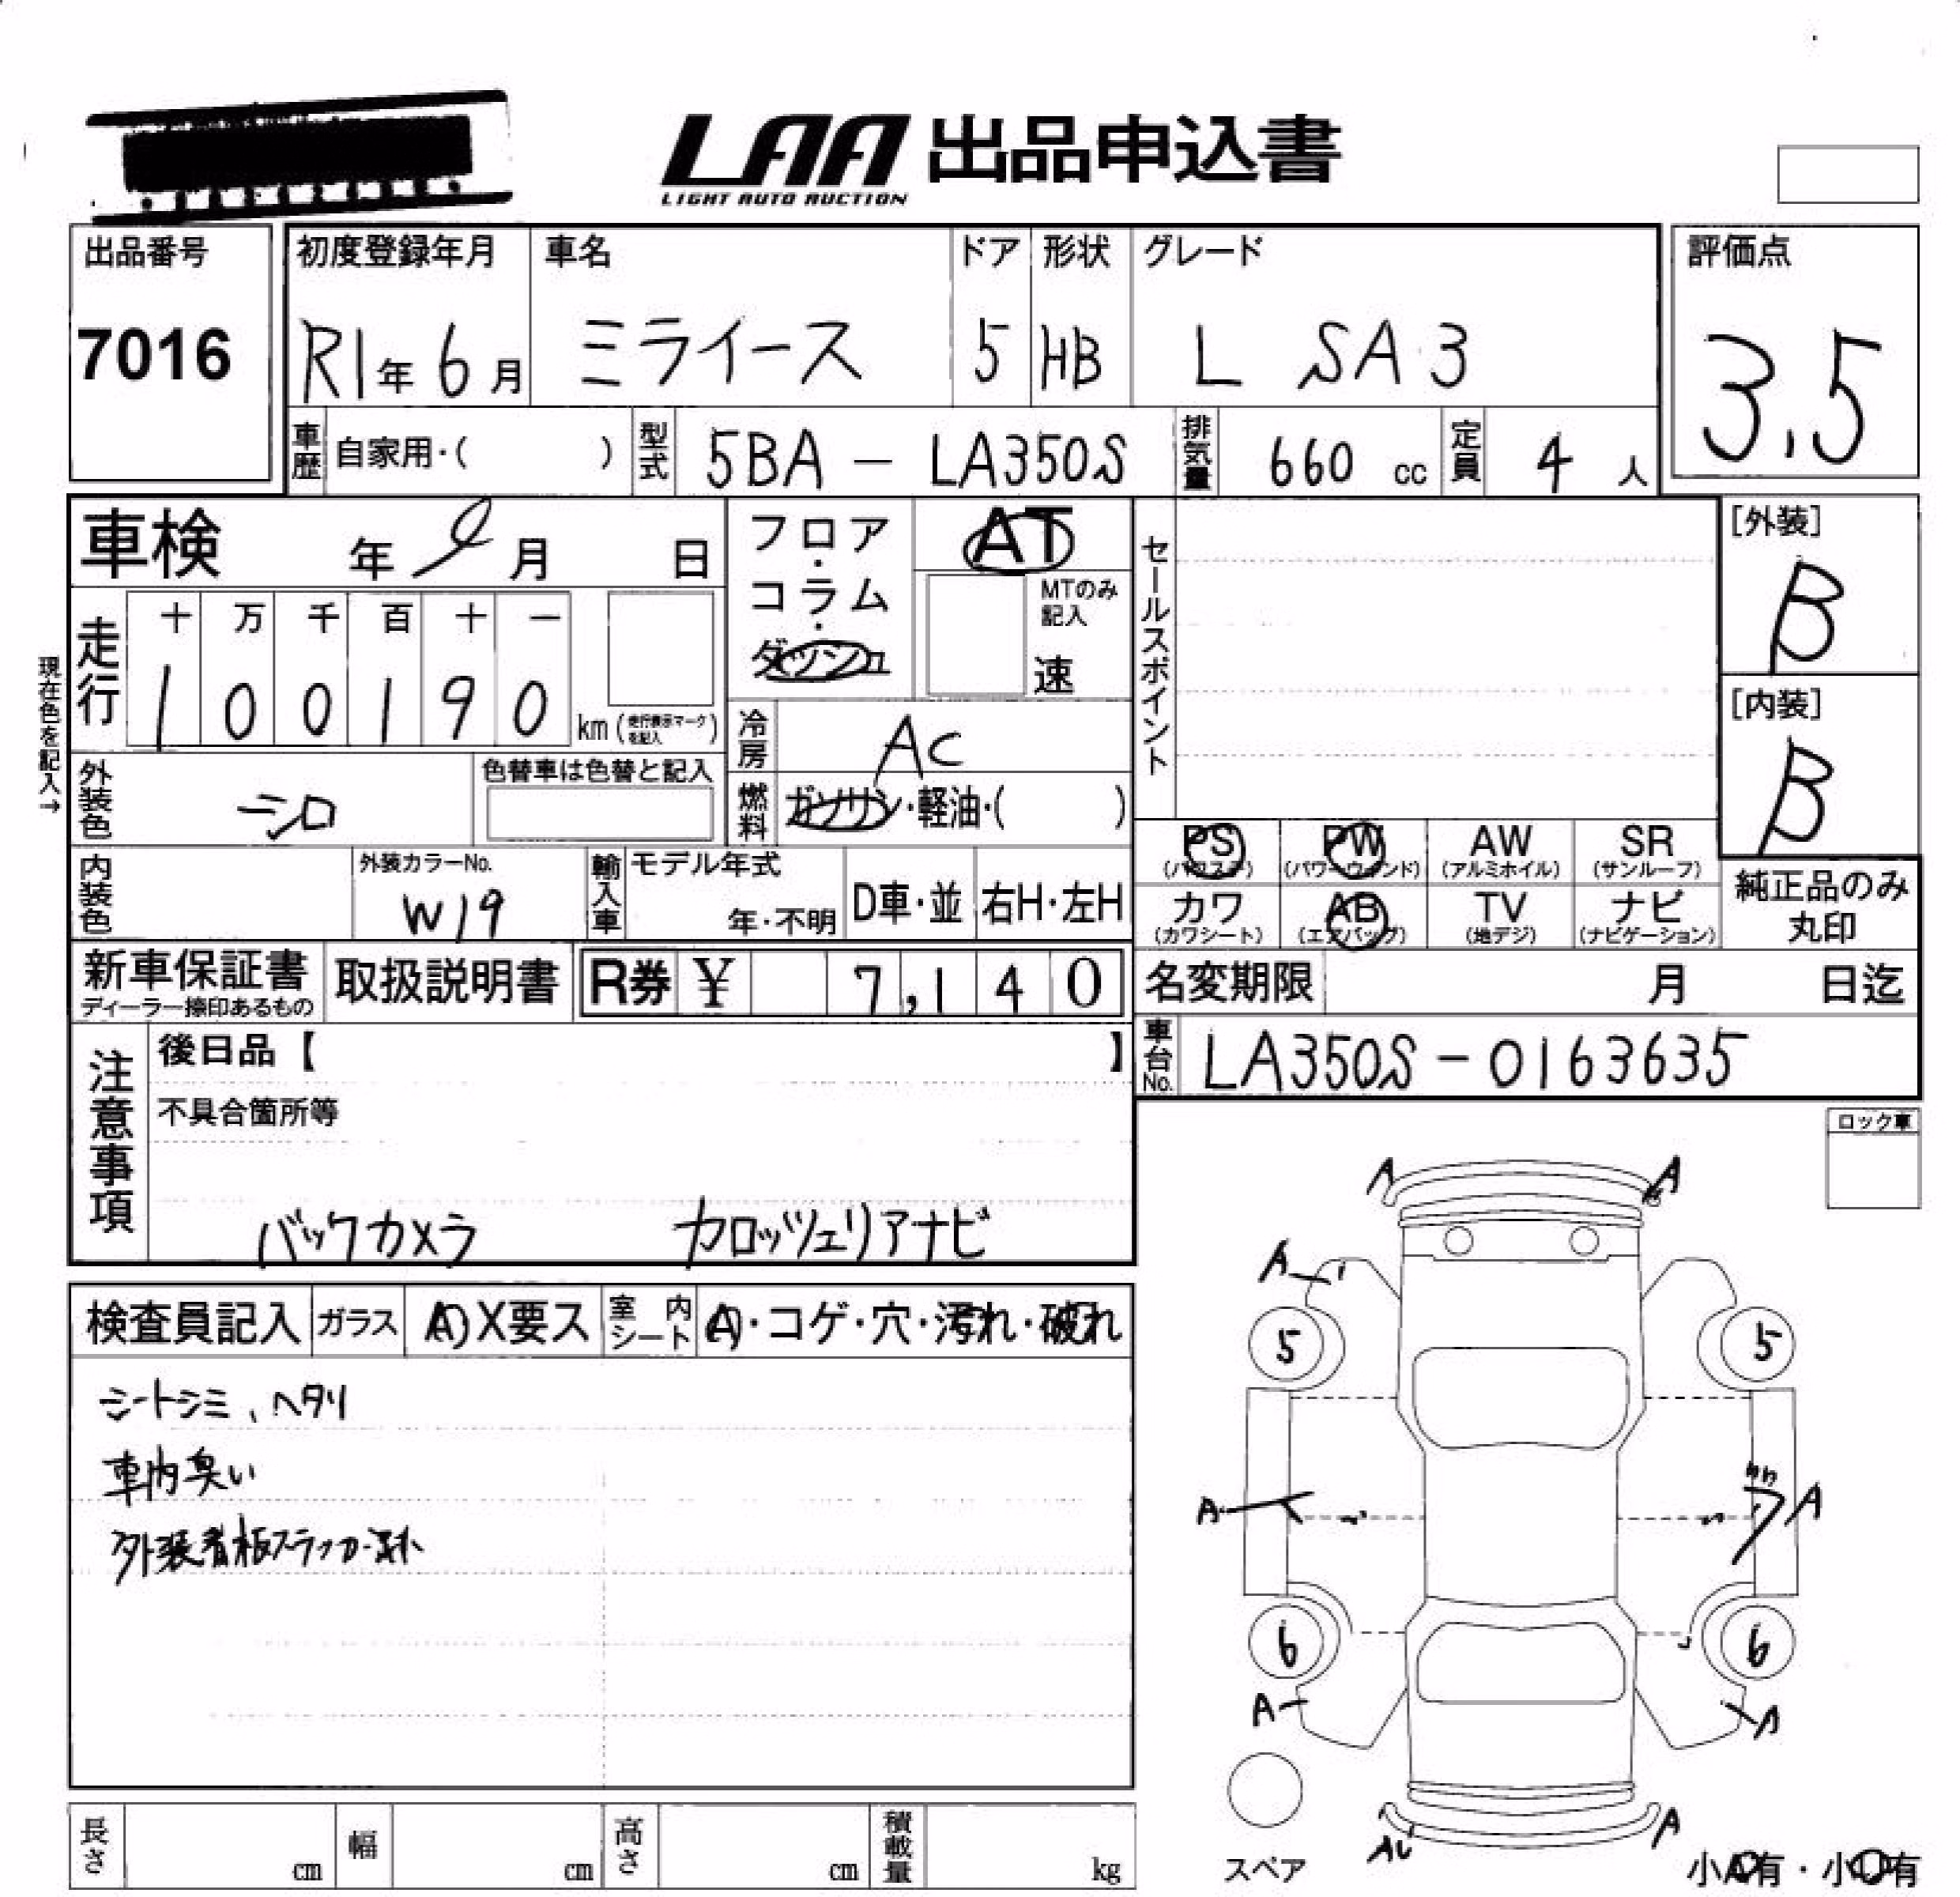 LAA 出品申込書
LIGHT AUTO AUCTION
出品番号
7016
初度登録年月
R1年 6月
車名
ミライース
ドア
5
形状
HB
グレード
L SA3
評価点
3.5
車歴 自家用・( )
型式 5BA - LA350S
排気量 660 cc
定員 4 人
車検 年 月 日
フロア・コラム・ダッシュ
AT
MTのみ記入
速
セールスポイント
[外装]
B
[内装]
B
現在色を記入→
走行
十 万 千 百 十 一
1 0 0 1 9 0 km (走行表示マークを記入)
冷房 AC
燃料 ガソリン・軽油・( )
外装色 シロ
色替車は色替と記入
内装色
外装カラーNo.
W19
輸入車 モデル年式
年・不明
D車・並
右H・左H
PS (パワステ)
PW (パワーウィンド)
AW (アルミホイル)
SR (サンルーフ)
カワ (カワシート)
AB (エアバッグ)
TV (地デジ)
ナビ (ナビゲーション)
純正品のみ
丸印
新車保証書
ディーラー捺印あるもの
取扱説明書
R券 ¥ 7,140
名変期限 月 日迄
車台No. LA350S-0163635
注意事項
後日品【 】
不具合箇所等
バックカメラ カロッツェリアナビ
ロック車
検査員記入 ガラス A X要ス 室内シート A・コゲ・穴・汚れ・破れ
シートシミ、ヘタリ
車内臭い
外装看板ステッカー
A A
A
5 5
A A
6 6
A A
A
スペア
小A有・小U有
長さ cm
幅 cm
高さ cm
積載量 kg